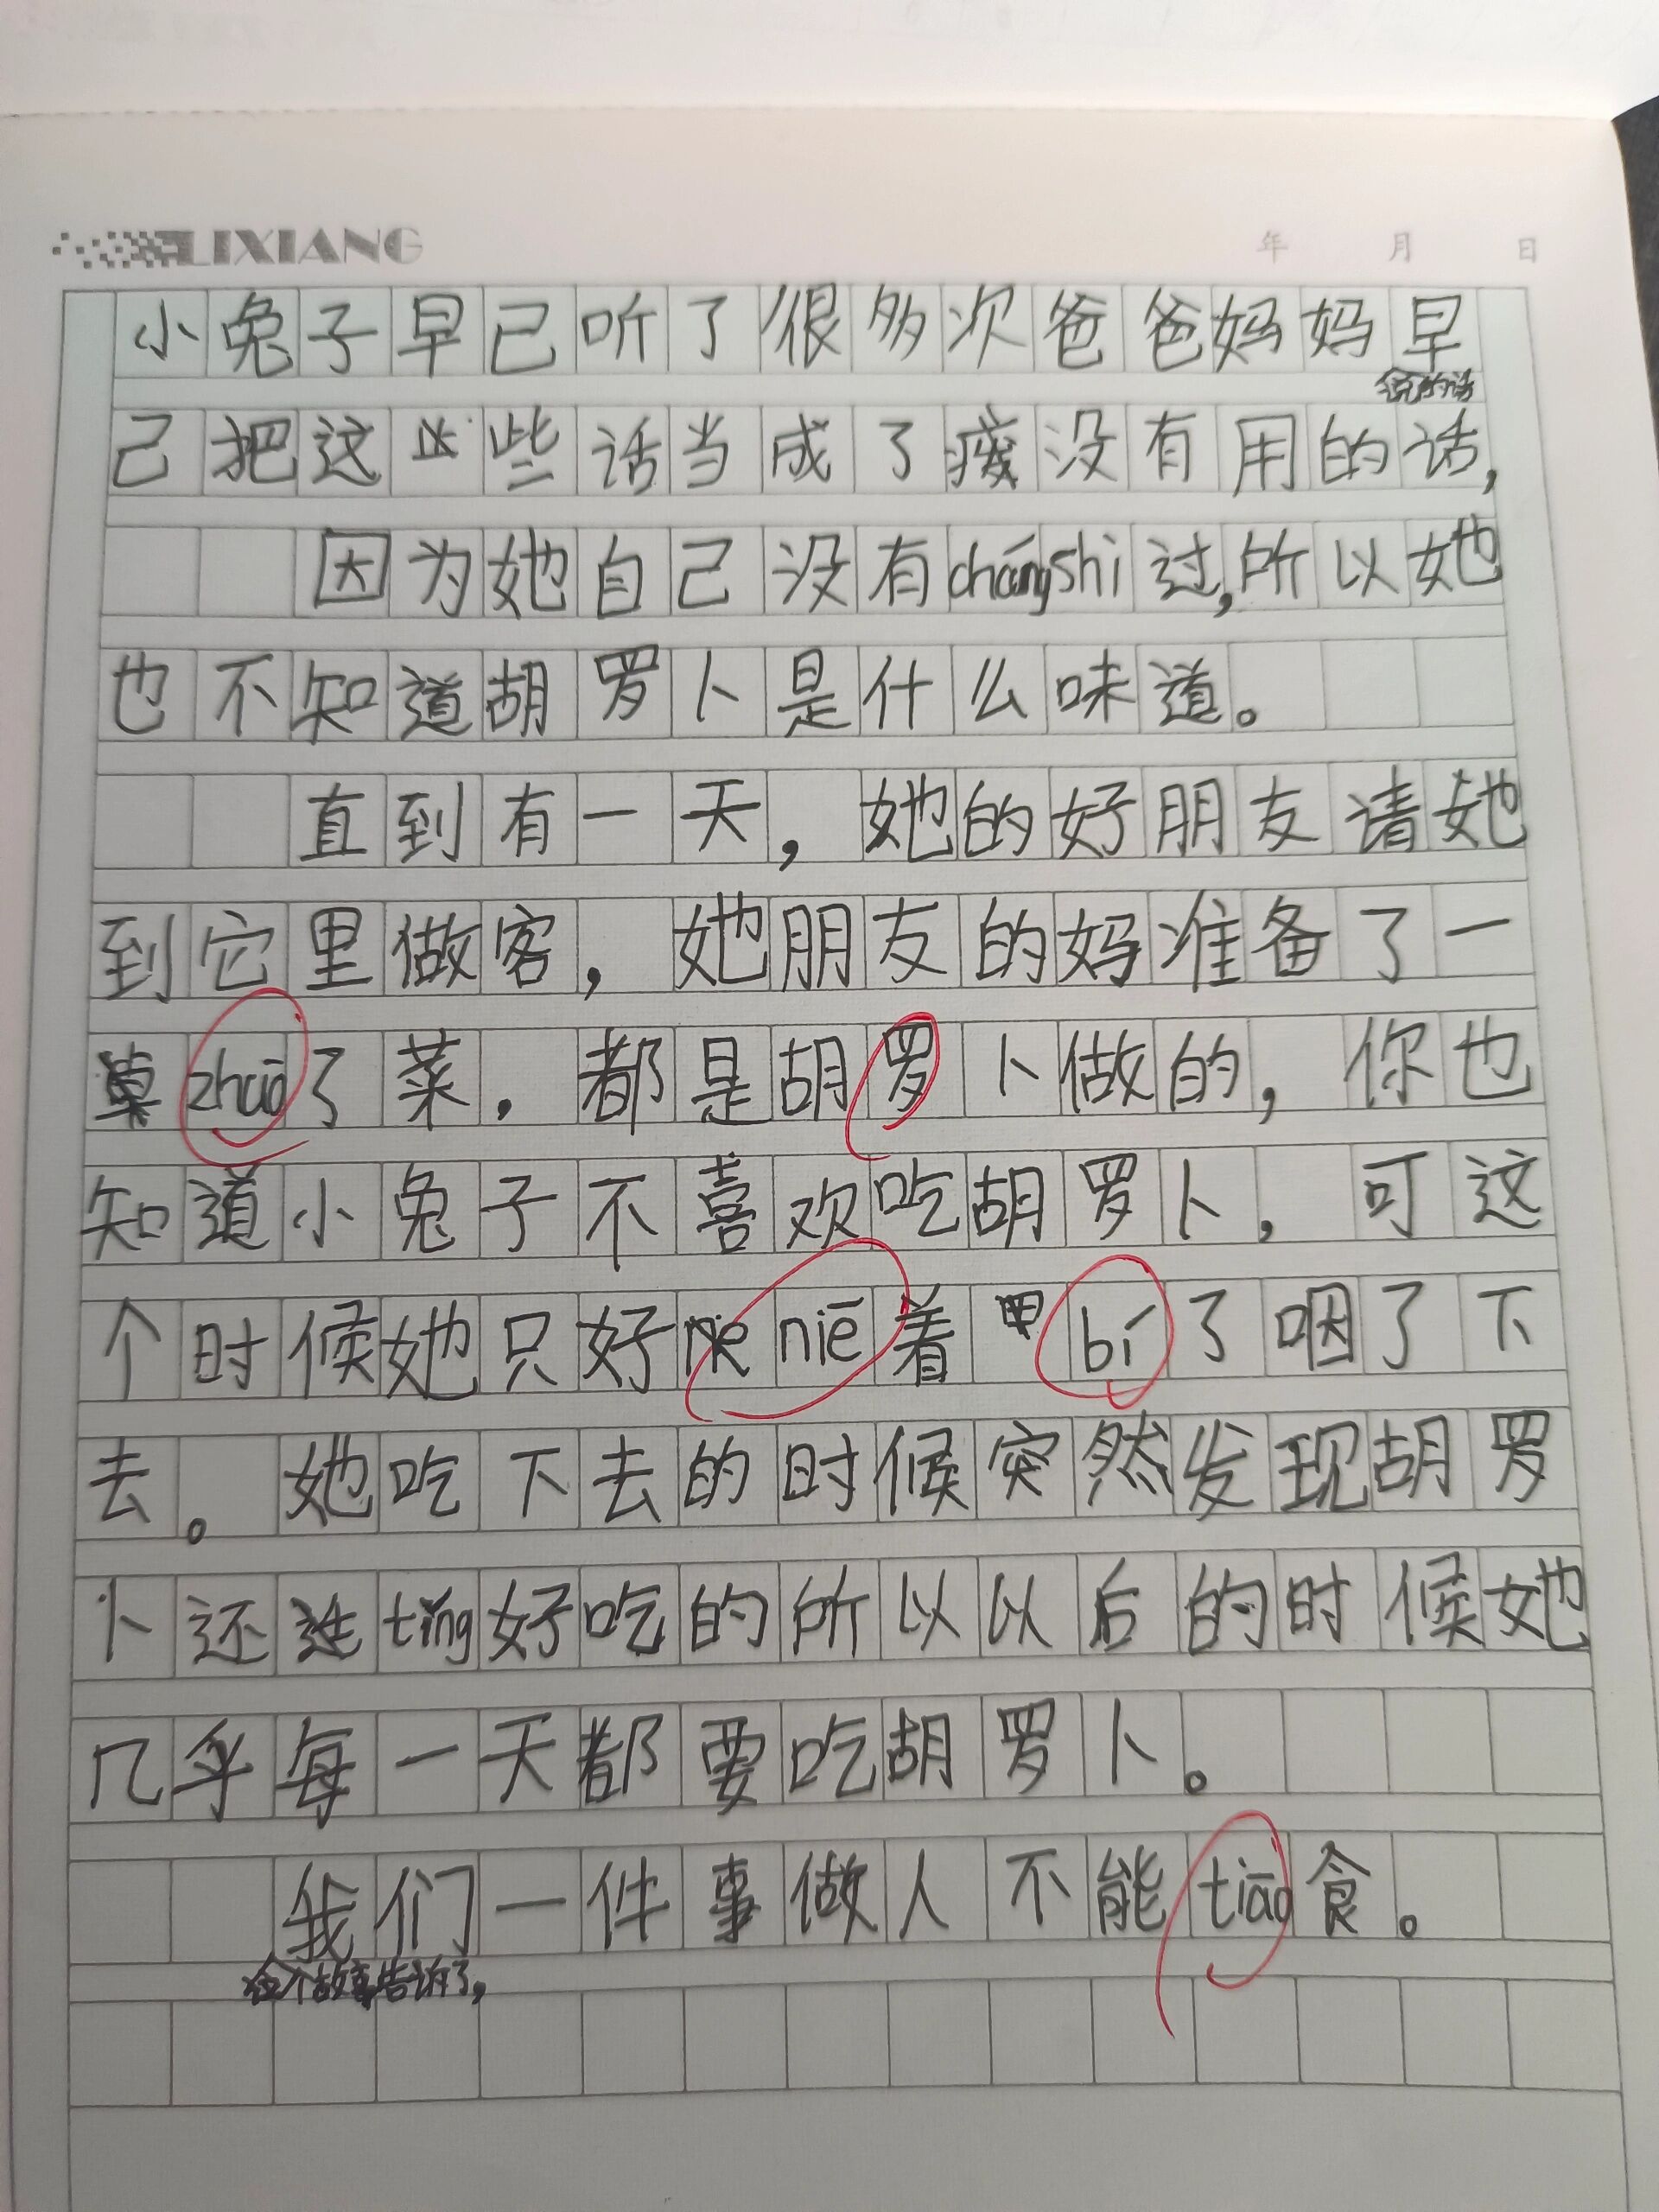 LIXIANG
年 月 日
小兔子早已听了很多次爸爸妈妈早
说的话
己把这些话当成了没有用的话,
因为她自己没有chángshì过,所以她
也不知道胡罗卜是什么味道。
直到有一天,她的好朋友请她
到它里做客,她朋友的妈准备了一
桌zhuō了菜.都是胡罗卜做的,你也
知道小兔子不喜欢吃胡罗卜,可这
个时候她只好niē着bí了咽了下
去。她吃下去的时候突然发现胡罗
卜还tǐng好吃的所以以后的时候她
几乎每一天都要吃胡罗卜。
我们一件事做人不能tiāo食。
这个故事告诉了,